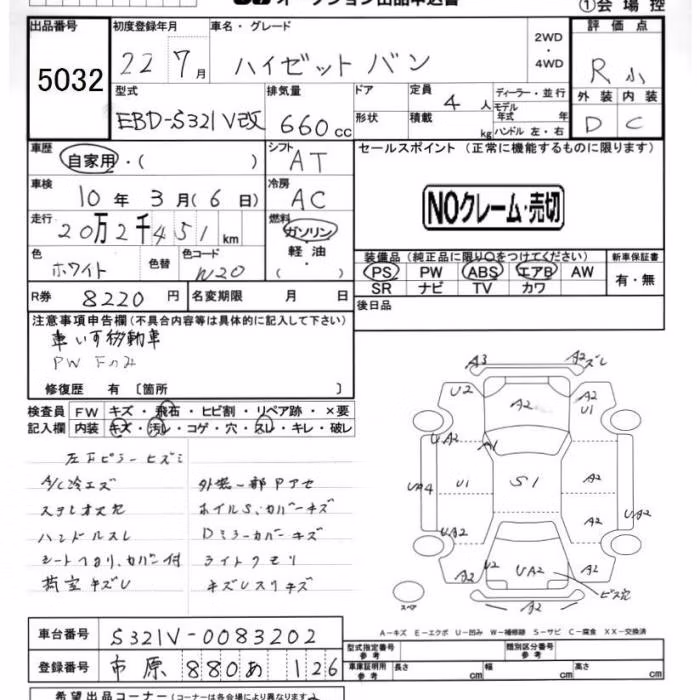 オークション出品申込書
①会場控
出品番号 5032
初度登録年月 22 7月
車名・グレード ハイゼット バン
2WD ・ 4WD
評価点 R 小
外装 D 内装 C
型式 EBD-S321V改
排気量 660 cc
ドア 形状
定員 4 人
積載 kg
ディーラー・並行
モデル年式 年
ハンドル 左・右
車歴 自家用・( )
シフト AT
セールスポイント (正常に機能するものに限ります)
車検 10年 3月(6日)
冷房 AC
NOクレーム・売切
走行 20万2千451 km
燃料 ガソリン・軽油・( )
色 ホワイト 色替 色コード W20
装備品(純正品に限り〇をつけてください) 新車保証書
PS PW ABS エアB AW 有・無
SR ナビ TV カワ
R券 8220円 名変期限 月 日
後日品
注意事項申告欄(不具合内容等は具体的に記入して下さい)
車いす移動車
PW Fのみ
修復歴 有 〔箇所 〕
検査員 FW キズ・飛石・ヒビ割・リペア跡・×要
記入欄 内装 キズ・汚レ・コゲ・穴・スレ・キレ・破レ
A/C冷エズ 外装一部Pアセ
ハンドルスレ Dミラーカバーキズ
ライトクモリ
荷室キズU
A3 A2 ズレ
U2 A2 A2 U1
UA2 A1
UA4 U1 S1 A2
UA2 A2 UA2
A2 U2 UA2 A2
ビス穴
A2
スペア
A-キズ E-エクボ U-凹み W-補修跡 S-サビ C-腐食 XX-交換済
車台番号 S321V-0083202
登録番号 市原 880あ 126
型式指定番号 参考 類別区分番号 参考
車庫証明用 参考 長さ cm 幅 cm 高さ cm
希望出品コーナー(コーナーは各会場により異なります)